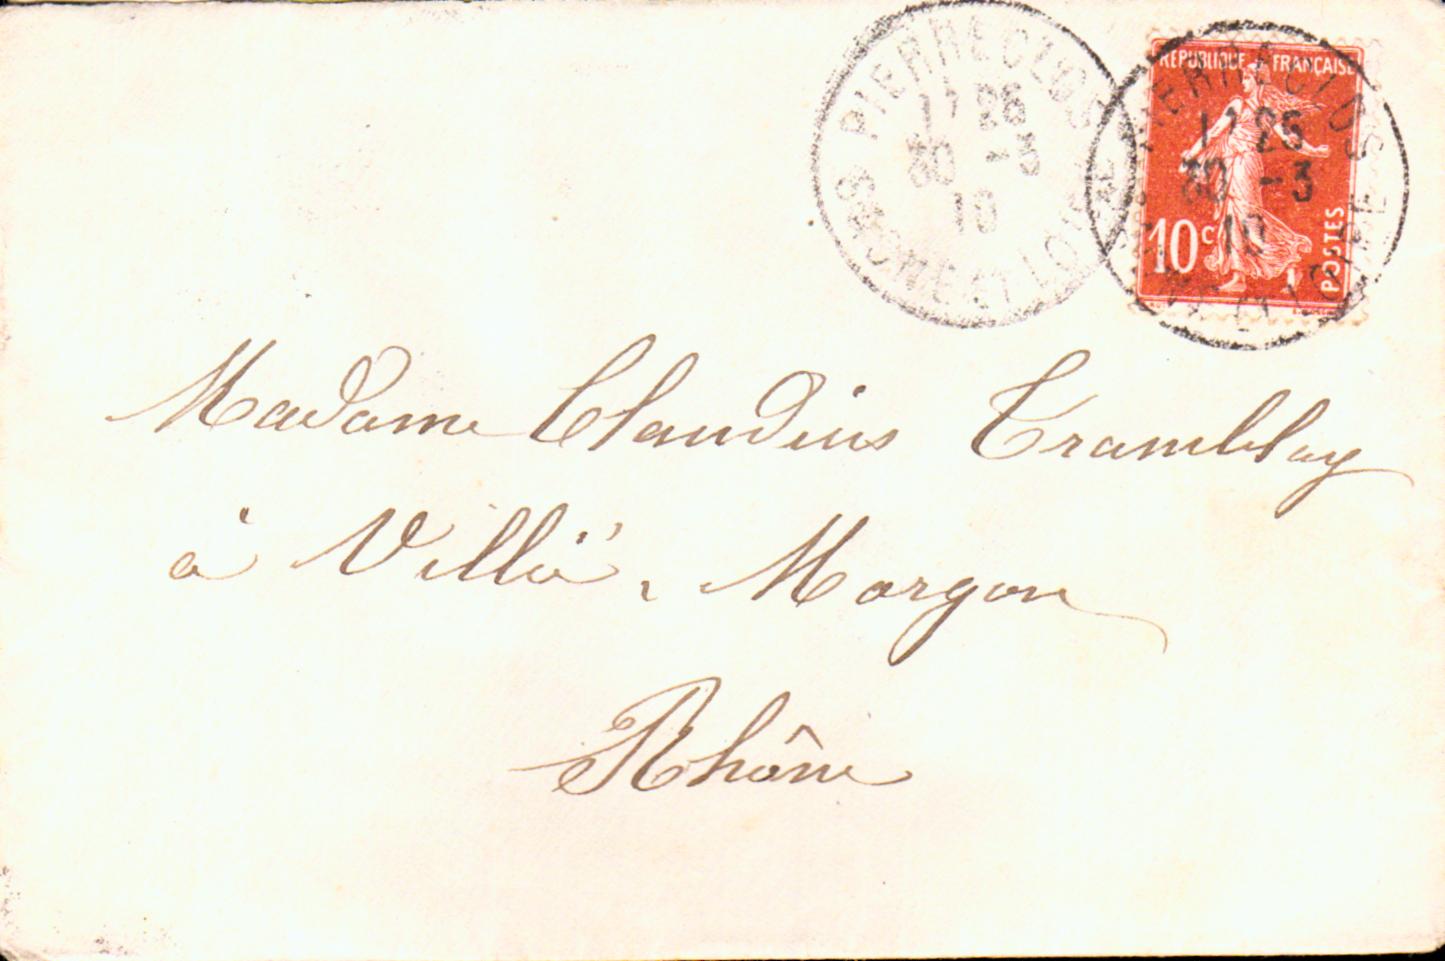 PIERRECLOS
17 25
30 -3
10
SAONE ET LOIRE
REPUBLIQUE FRANÇAISE
10c
POSTES
PIERRECLOS
17 25
30 -3
10
SAONE ET LOIRE
Madame Claudius Tramblay
à Villié-Morgon
Rhône